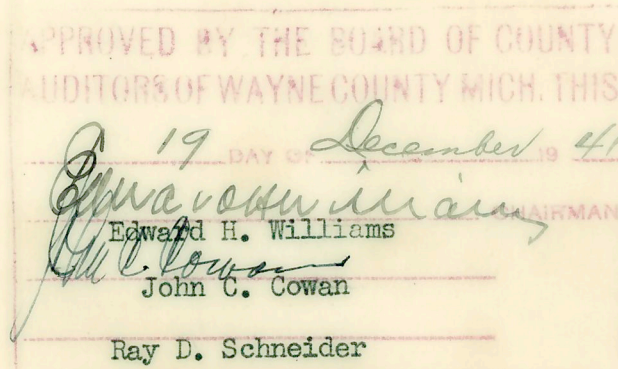 APPROVED BY THE BOARD OF COUNTY
AUDITORS OF WAYNE COUNTY MICH. THIS
19 DAY OF December 19 41
Edward H Williams CHAIRMAN
Edward H. Williams
John C. Cowan
John C. Cowan
Ray D. Schneider